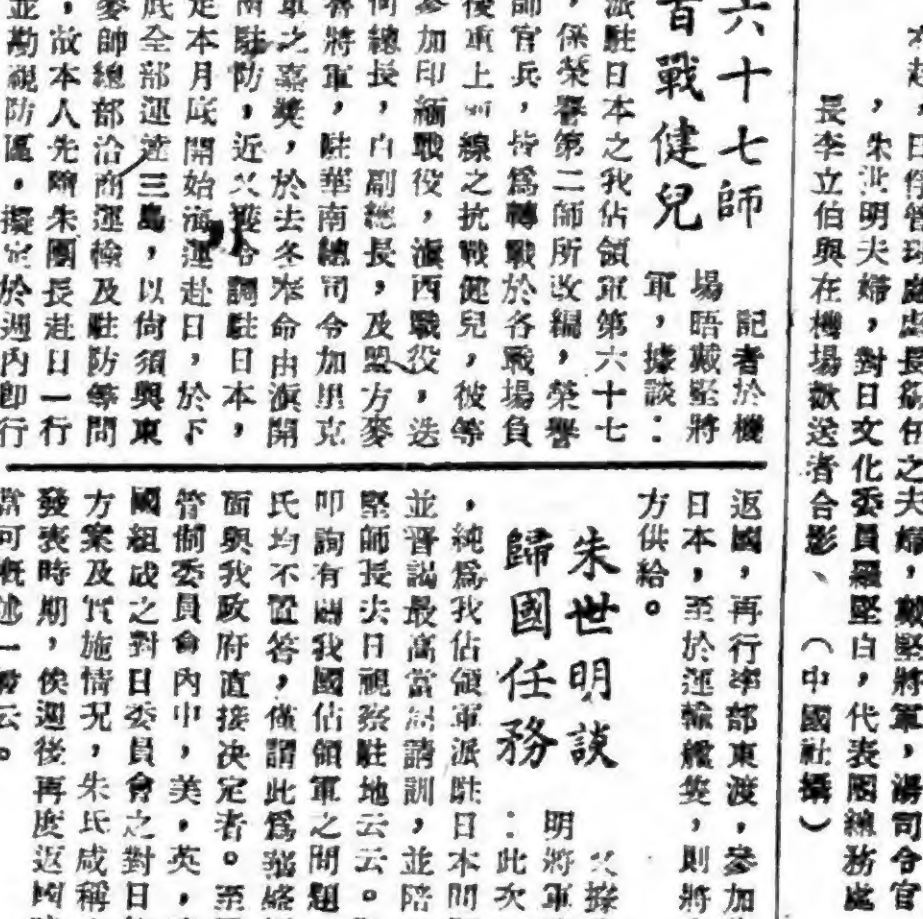 處處長僑任之夫婦，戴堅將軍，湯司令官
，朱世明夫婦，對日文化委員羅堅白，代表團總務處
長李立伯與在機場歡送者合影、（中國社攝）
六十七師
百戰健兒
記者於機
場晤戴堅將
軍，據談：
派駐日本之我佔領軍第六十七
，係榮譽第二師所改編，榮譽
師官兵，皆爲轉戰於各戰場負
後重上前線之抗戰健兒，彼等
參加印緬戰役，滇西戰役，迭
何總長，白副總長，及盟方麥
將軍，駐華南總司令加里克
軍之嘉獎，於去冬奉命由滇開
駐防，近又獲令調駐日本，
定本月底開始海運赴日，於下
底全部運達三島，以尙須與東
麥帥總部洽商運輸及駐防等問
，故本人先隨朱團長赴日一行
並勘視防區。擬定於週內卽行
返國，再行率部東渡，參加
日本，至於運輸艦隻，則將
方供給。
朱世明談
歸國任務
又據
明將軍
：此次
，純爲我佔領軍派駐日本問
並晉謁最高當局請訓，並陪
堅師長決日視察駐地云云。
叩詢有關我國佔領軍之問題
氏均不置答，僅謂此爲
面與我政府直接決定者。至
管制委員會內中，美，英，
國組成之對日委員會之對日
方案及實施情況，朱氏咸稱
發表時期，俟週後再度返國
當可概述一般云。